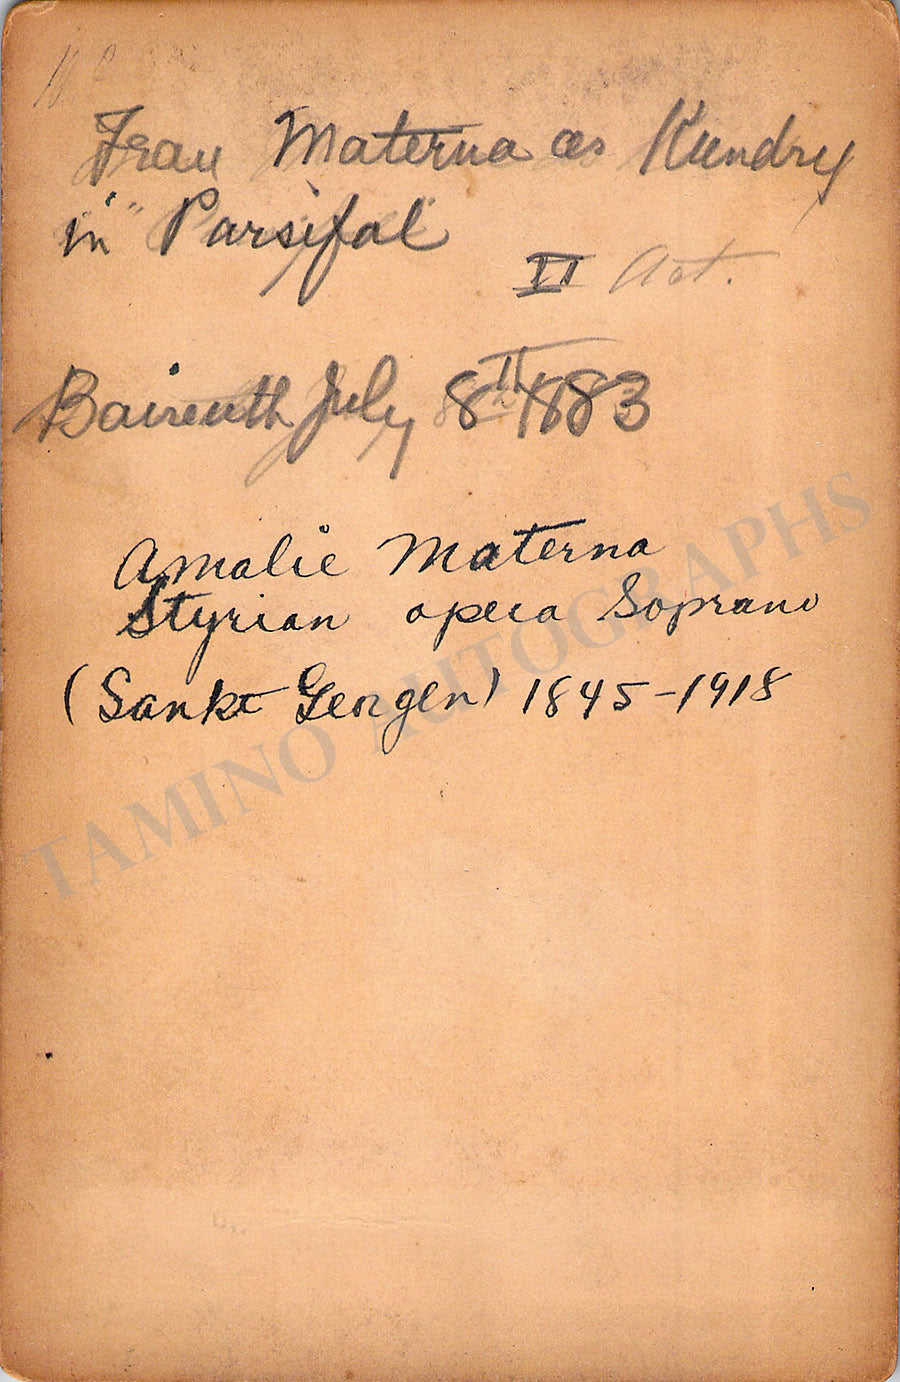 Frau Materna as Kundry
in "Parsifal
II Act.
Baireuth July 8th 1883
Amalie Materna
Styrian opera Soprano
(Sankt Georgen) 1845-1918
TAMINO AUTOGRAPHS